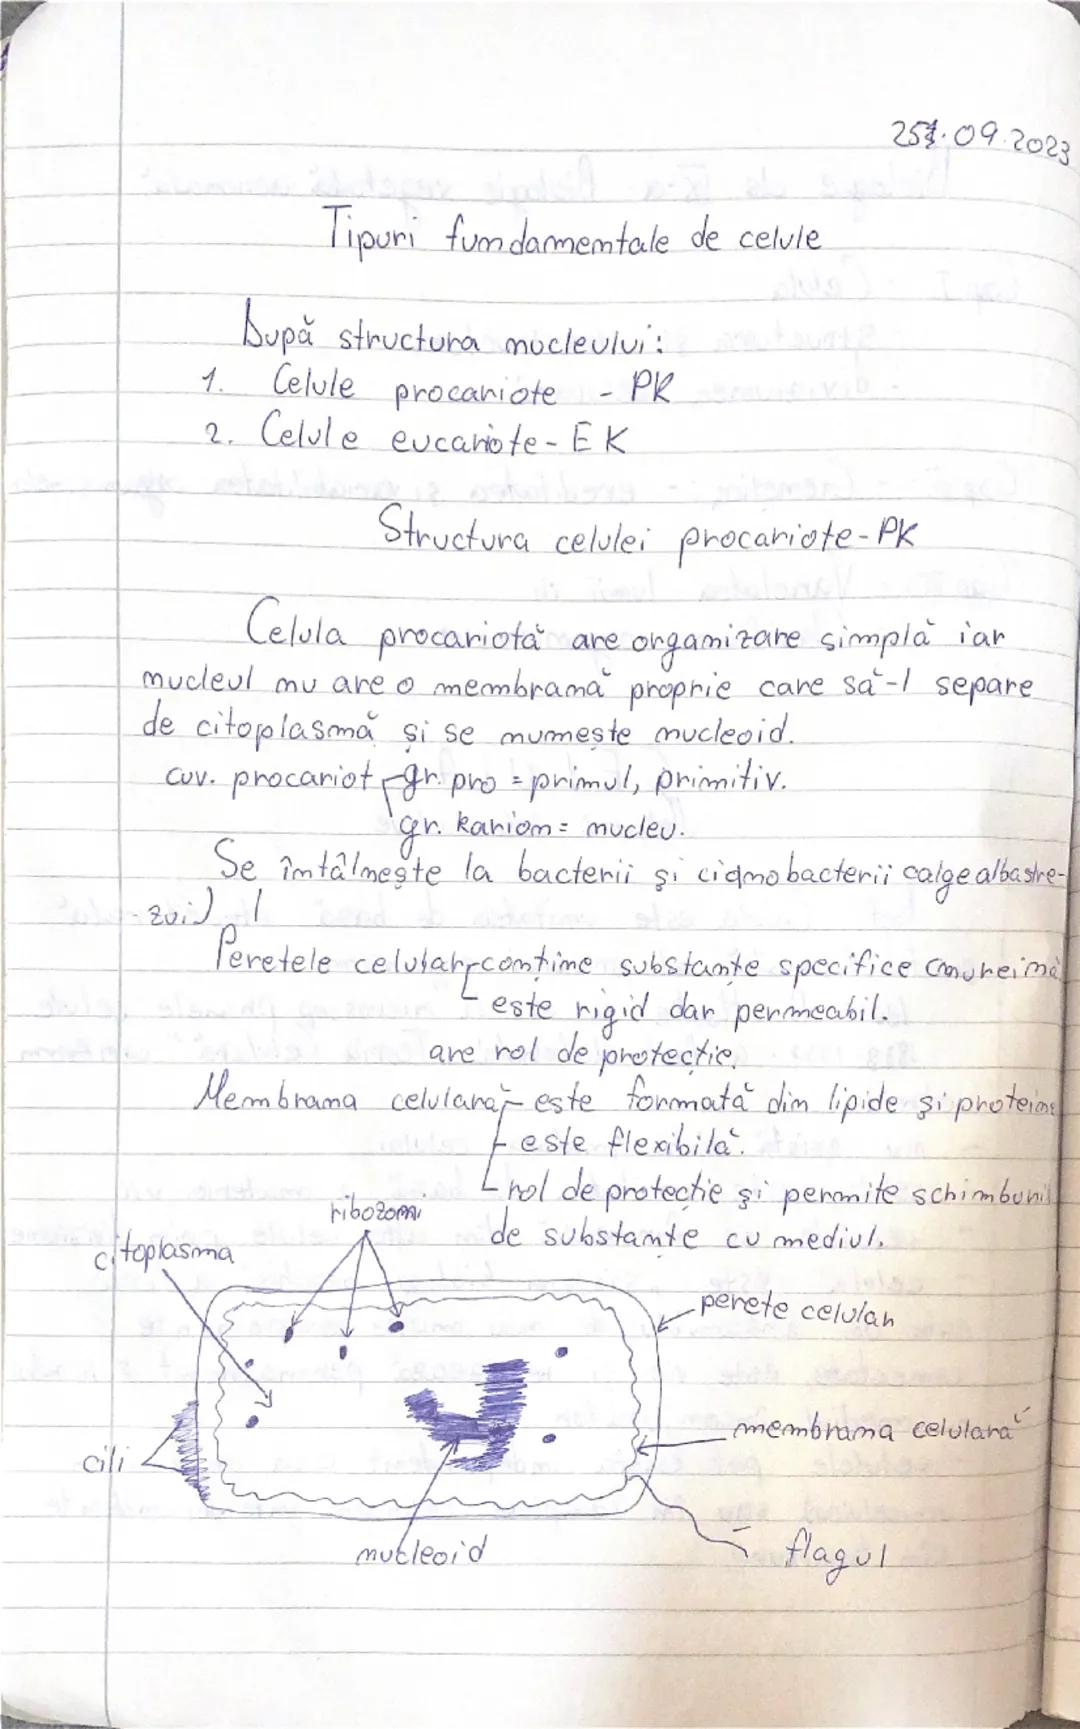 25.09.2023
Tipuri fundamentale de celule
După structura nucleului:
1. Celule procariote - PK
2. Celule eucariote - EK
Structura celulei procariote - PK
Celula procariotă are organizare simplă iar
nucleul nu are o membrană proprie care să-l separe
de citoplasmă și se numește nucleoid.
cuv. procariot gr. pro = primul, primitiv.
gr. karion = nucleu.
Se întâlnește la bacterii și cianobacterii (alge albastre-
-zui)
Peretele celular conține substanțe specifice (mureină
este rigid dar permeabil.
are rol de protecție.
Membrana celulară - este formată din lipide și proteine
- este flexibilă.
- rol de protecție și permite schimburi
de substanțe cu mediul.
ribozomi
citoplasma
perete celular
membrana celulară
cili
nucleoid
flagul